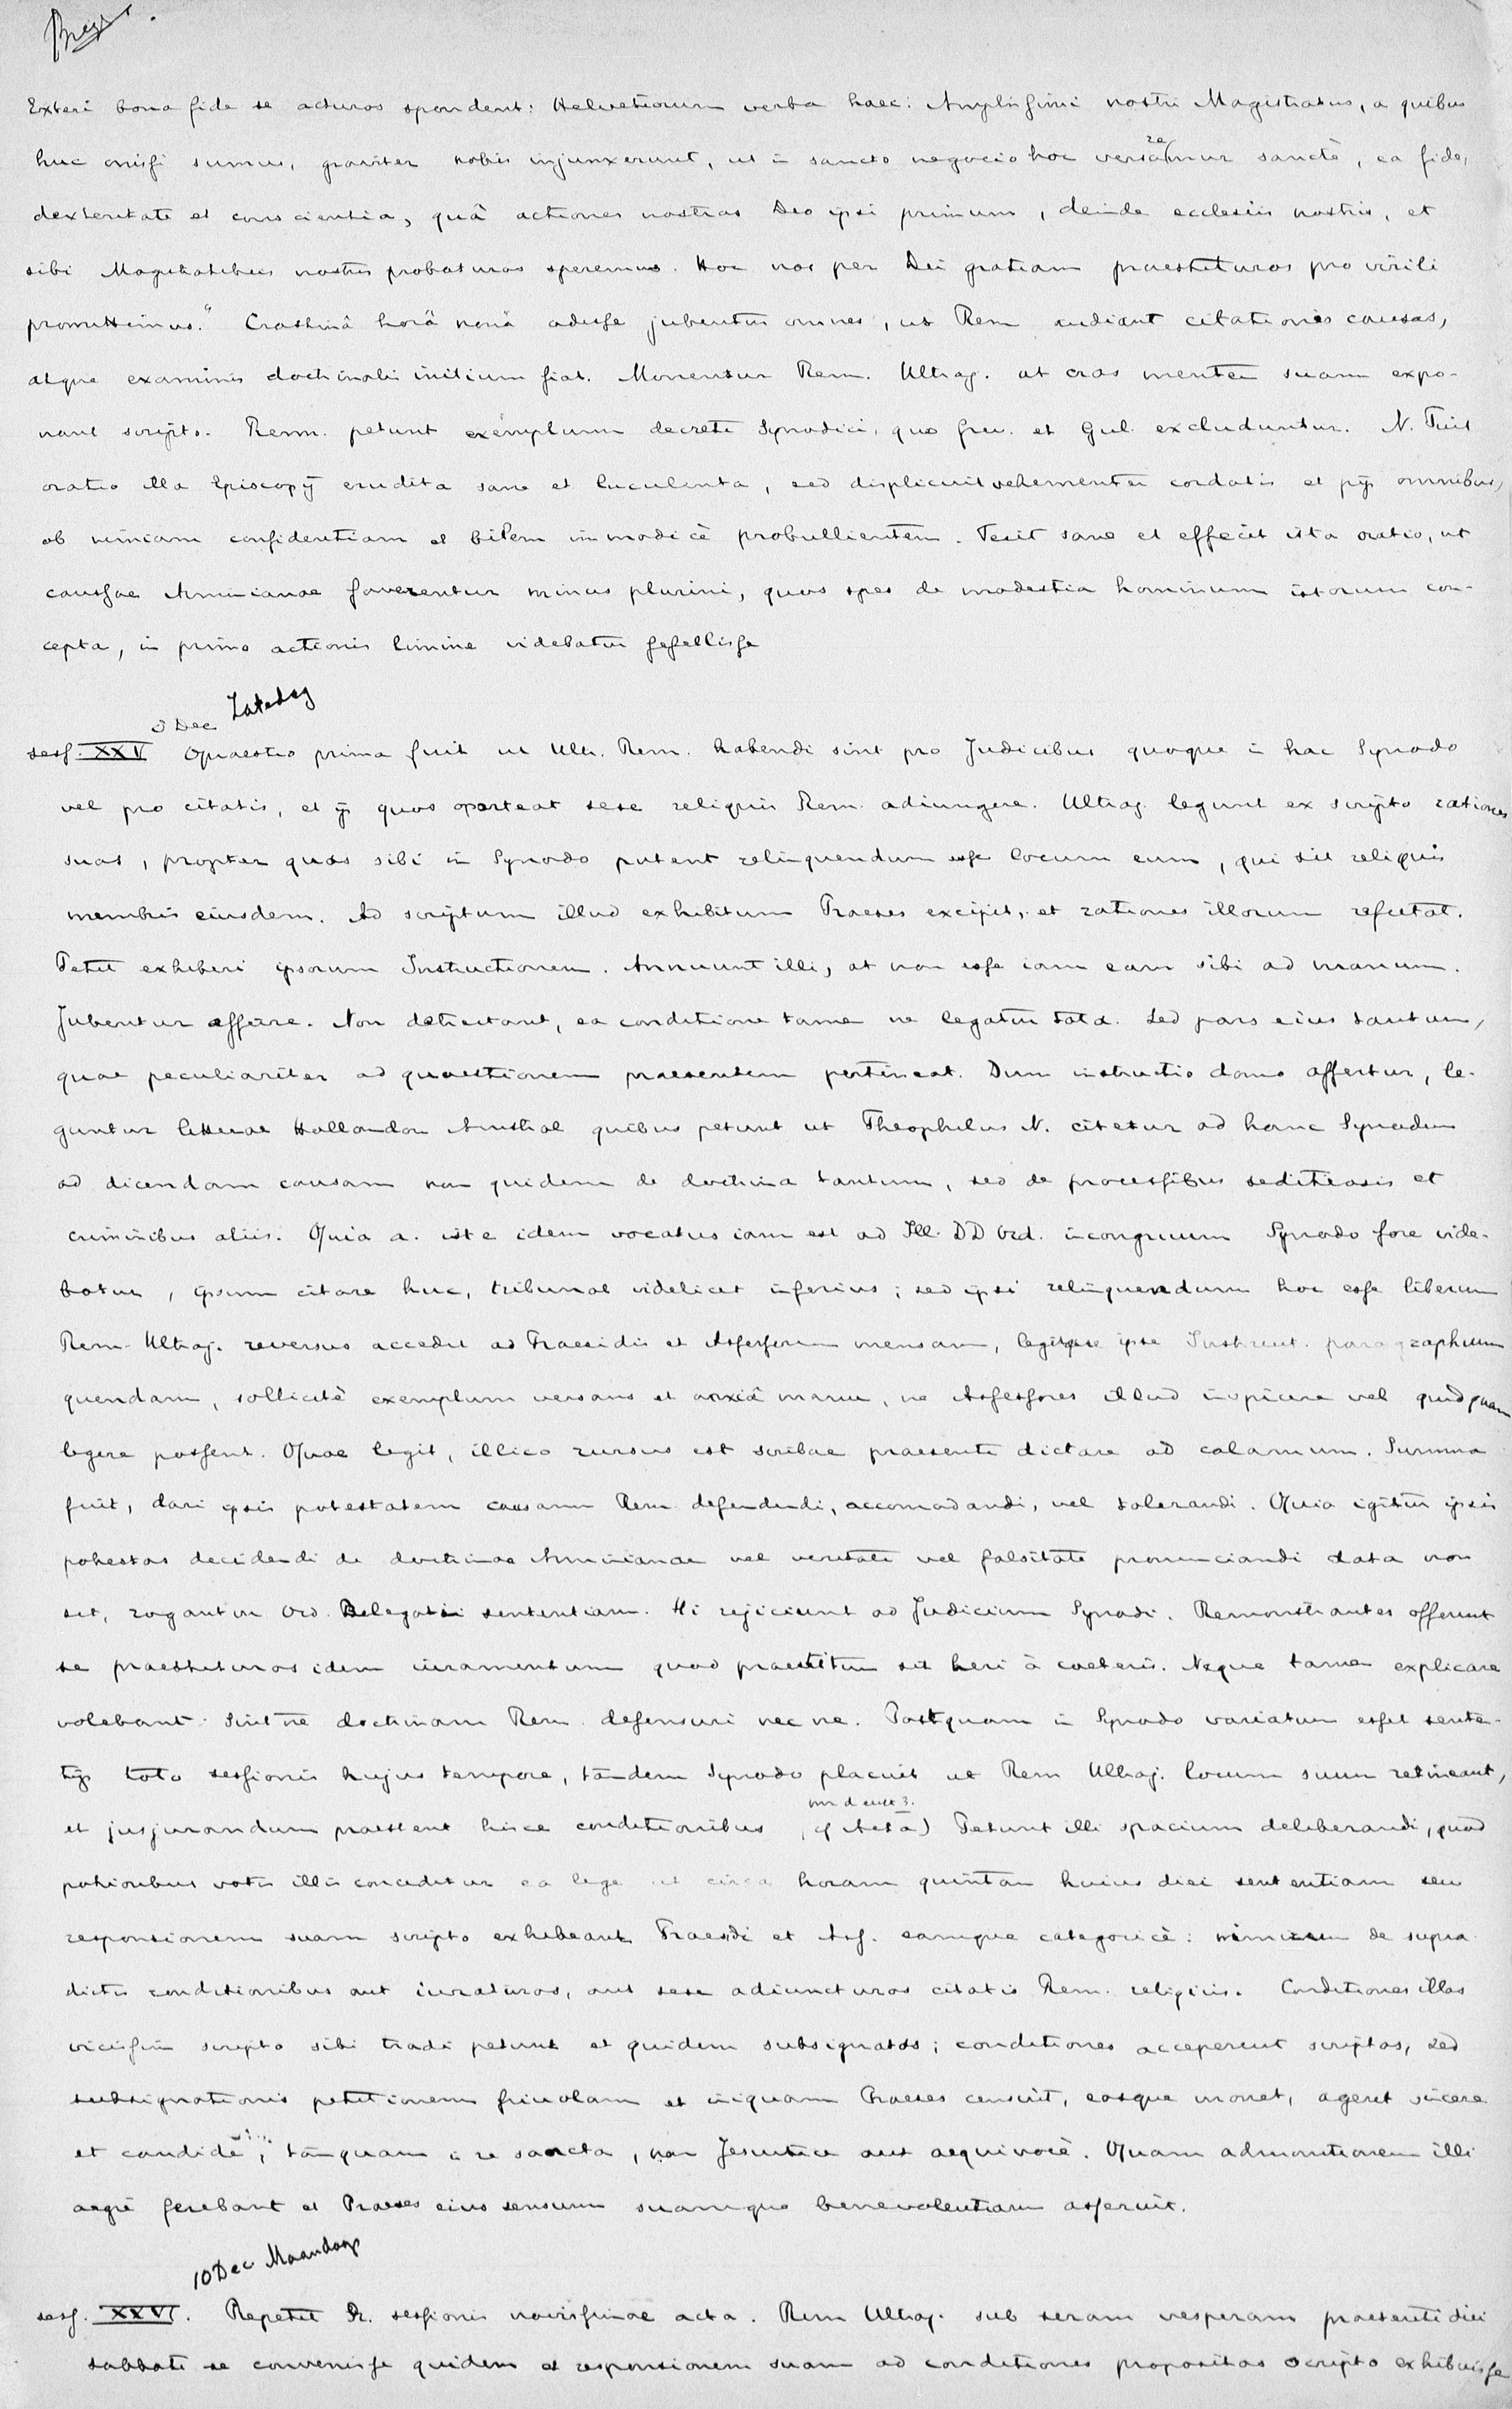 Exteri bona fide se acturos spondent: Helvetiorum verba haec: Amplissimi nostri Magistratus, a quibus
huc missi sumus, graviter nobis injunxerunt, ut in sancto negocio hoc versaremur sanctè, ea fide,
dexteritate et conscientia, quâ actiones nostras Deo ipsi primum, deinde ecclesiis nostris, et
sibi Magistratibus nostris probaturos speremus. Hoc nos per Dei gratiam praestituros pro virili
promittimus." Crastinâ horâ nonâ adesse jubentur omnes, ut Rem audiant citationis causas,
atque examinis doctrinalis initium fiat. Monentur Rem. Ultraj. ut cras mentem suam expo-
nant scripto. Rem. petunt exemplum decreti Synodici, quo Grev. et Gul. excluduntur. N. Fuit
oratio illa Episcopij erudita sane et luculenta, sed displicuit vehementer cordatis et pijs omnibus,
ob nimiam confidentiam et bilem immodicè probullientem. Fecit sane et effecit ista oratio, ut
caussae Arminianae faverentur minus plurimi, quos spes de modestia hominum istorum con-
cepta, in primo actionis limine videbatur fefellisse
8 Dec Zaterdag
sess. XXV Quaestio prima fuit ut Ultr. Rem. habendi sint pro Judicibus quoque in hac Synodo
vel pro citatis, et ij quos oporteat sese reliquis Rem. adiungere. Ultraj. legunt ex scripto rationes
suas, propter quas sibi in Synodo putent relinquendum esse locum eum, qui sit reliquis
membris eiusdem. Ad scriptum illud exhibitum Praeses excipit, et rationes illorum refutat.
Petit exhiberi ipsorum Instructionem. Annuunt illi, at non esse iam eam sibi ad manum.
Jubentur afferre. Non detrectant, ea conditione tamen ne legatur tota. sed pars eius tantum,
quae peculiariter ad quaestionem praesentem pertineat. Dum instructio domo affertur, le-
guntur litterae Hollandor Austral quibus petunt ut Theophilus N. citetur ad hanc Synodum
ad dicendam causam non quidem de doctrina tantum, sed de processibus seditiosis et
criminibus aliis. Quia a. iste idem vocatus iam est ad Ill. DD Ord. incongruum Synodo fore vide-
batur, ipsum citare huc, tribunal videlicet inferius; sed ipsi relinquendum hoc esse liberum
Rem. Ultraj. reversus accedit ad Praesidis et Assessorum mensam, legitque ipse Instruct. paragraphum
quendam, sollicitè exemplum versans et anxiâ manu, ne Assessores illud inspicere vel quidquam
legere possent. Quae legit, illico rursus est scribae praesenti dictare ad calamum. Summa
fuit, dari ipsis potestatem causam Rem. defendendi, accomodandi, vel tolerandi. Quia igitur ipsis
potestas decidendi de doctrinae Arminianae vel veritate vel falsitate pronunciandi data non
sit, rogantur Ord. Delegati sententiam. Hi rejiciunt ad Judicium Synodi. Remonstrantes offerunt
se praestituros idem iuramentum quod praestitum sit heri à caeteris. Neque tamen explicare
volebant sint ne doctrinam Rem. defensuri nec ne. Postquam in Synodo variatum esset senten-
tijs toto sessionis hujus tempore, tandem Synodo placuit ut Rem Ultraj. locum suum retineant,
et jusjurandum praestent hisce conditionibus, (cf Acta) Petunt illi spacium deliberandi, quod
potioribus votis illis conceditur ea lege ut circa horam quintam huius diei sententiam seu
responsionem suam scripto exhibeant Praesidi et Ass. eamque categoricè: nimirum de supra
dictis conditionibus aut iuraturos, aut sese adiuncturos citatis Rem. reliquis. Conditiones illas
vicissim scripto sibi tradi petunt et quidem subsignatas; conditiones acceperunt scriptas, sed
subsignationis petitionem frivolam et iniquam Praeses censuit, eosque monet, agerent sincere
et candidè, tanquam in re sancta, non Jesuitice aut aequivocè. Quam admonitionem illi
aegrè ferebant et Praeses eius sensum suamque benevolentiam asseruit.
10 Dec Maandag
sess. XXVI. Repetit Pr. sessionis novissimae acta. Rem Ultraj. sub seram vesperam praesenti diei
sabbati se convenisse quidem et responsionem suam ad conditiones propositas scripto exhibuisse